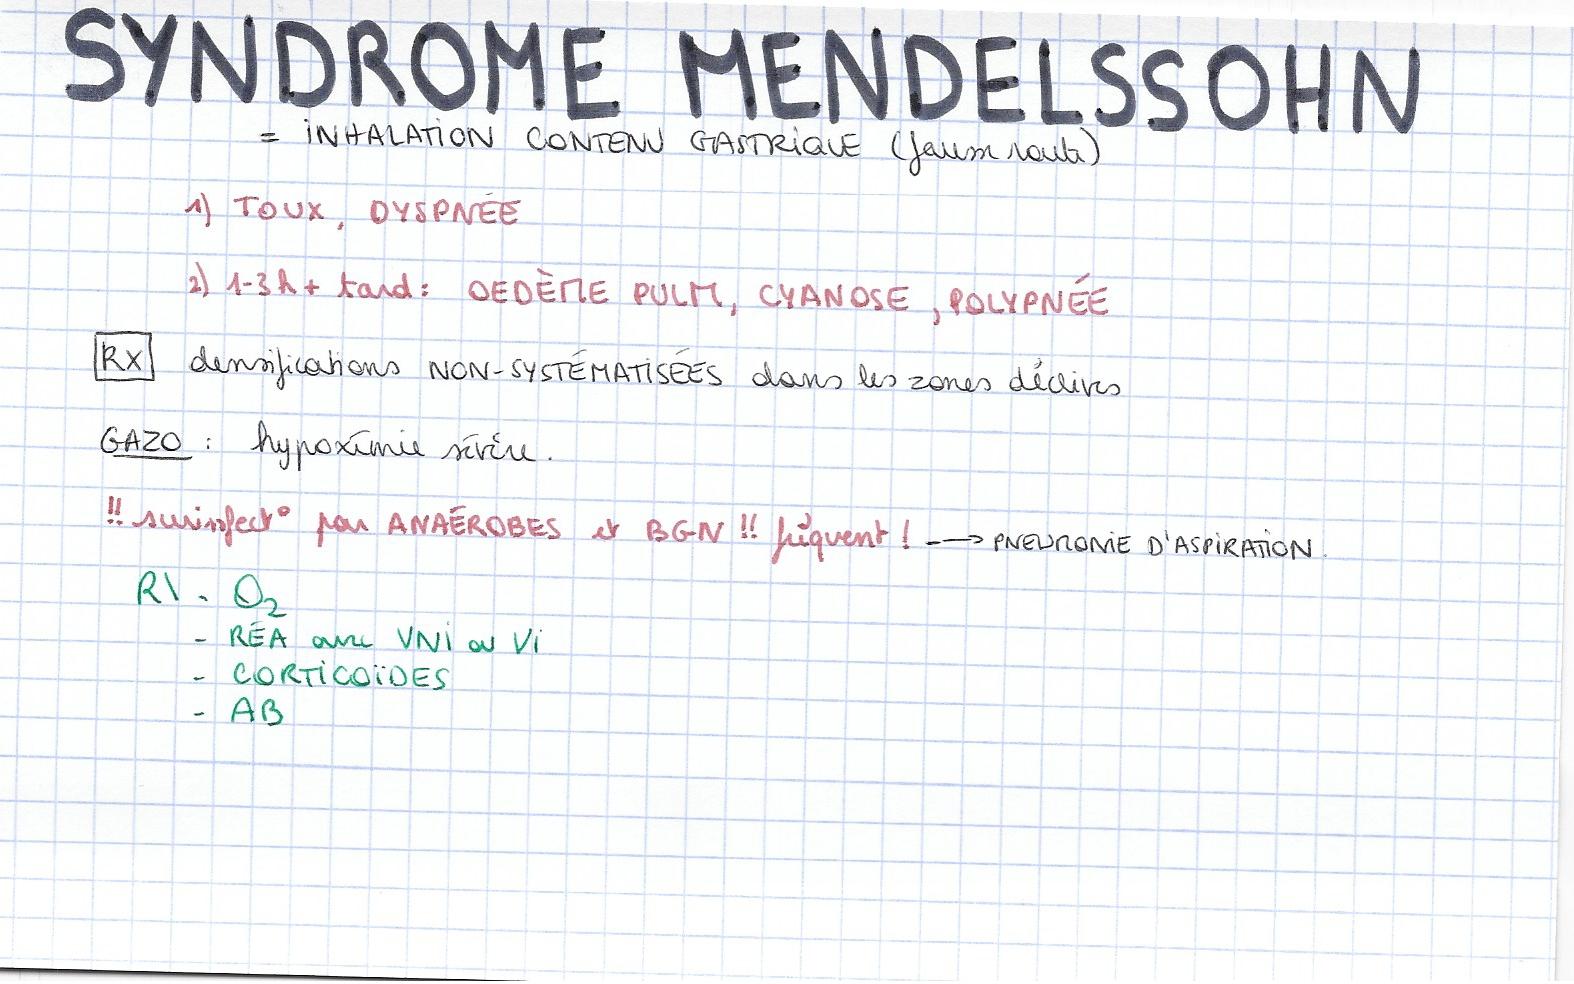 SYNDROME MENDELSSOHN
= INHALATION CONTENU GASTRIQUE (fausse route)
1) TOUX, DYSPNÉE
2) 1-3h + tard : OEDÈME PULM, CYANOSE, POLYPNÉE
RX densifications NON-SYSTÉMATISÉES dans les zones déclives
GAZO : hypoxémie sévère.
!! surinfect° par ANAÉROBES et BGN !! fréquent ! --→ PNEUMONIE D'ASPIRATION.
R\ - O2
- RÉA avec VNI ou VI
- CORTICOÏDES
- AB